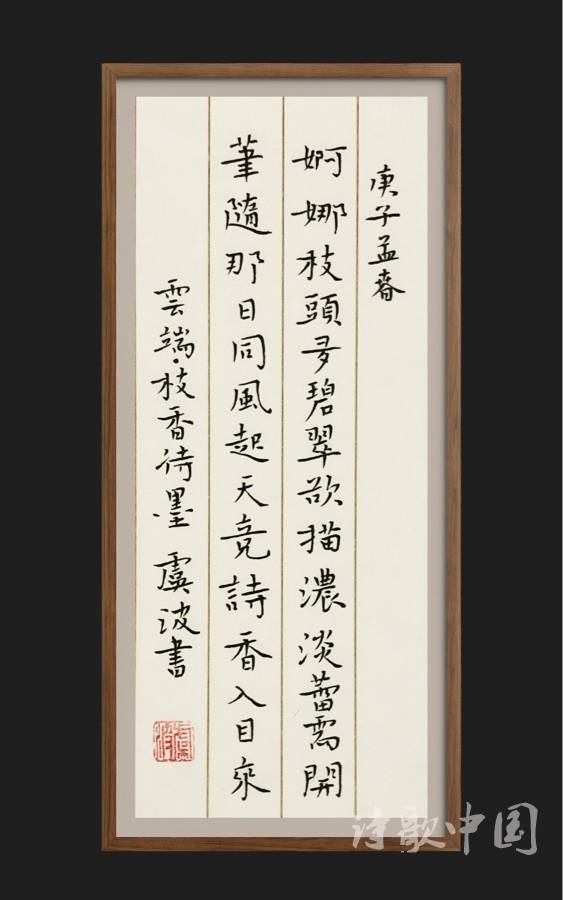 庚子孟春
婀娜枝頭夛碧翠欲描濃淡蕾開
筆隨那日同風起天竟詩香入目來
雲端·枝香待墨 虞波書
诗歌中国